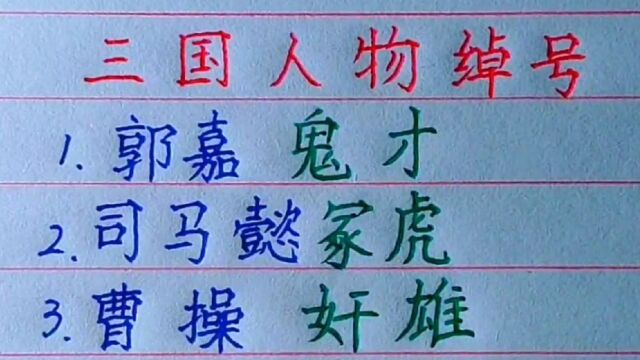 三国人物绰号
1.郭嘉 鬼才
2.司马懿冢虎
3.曹操 奸雄